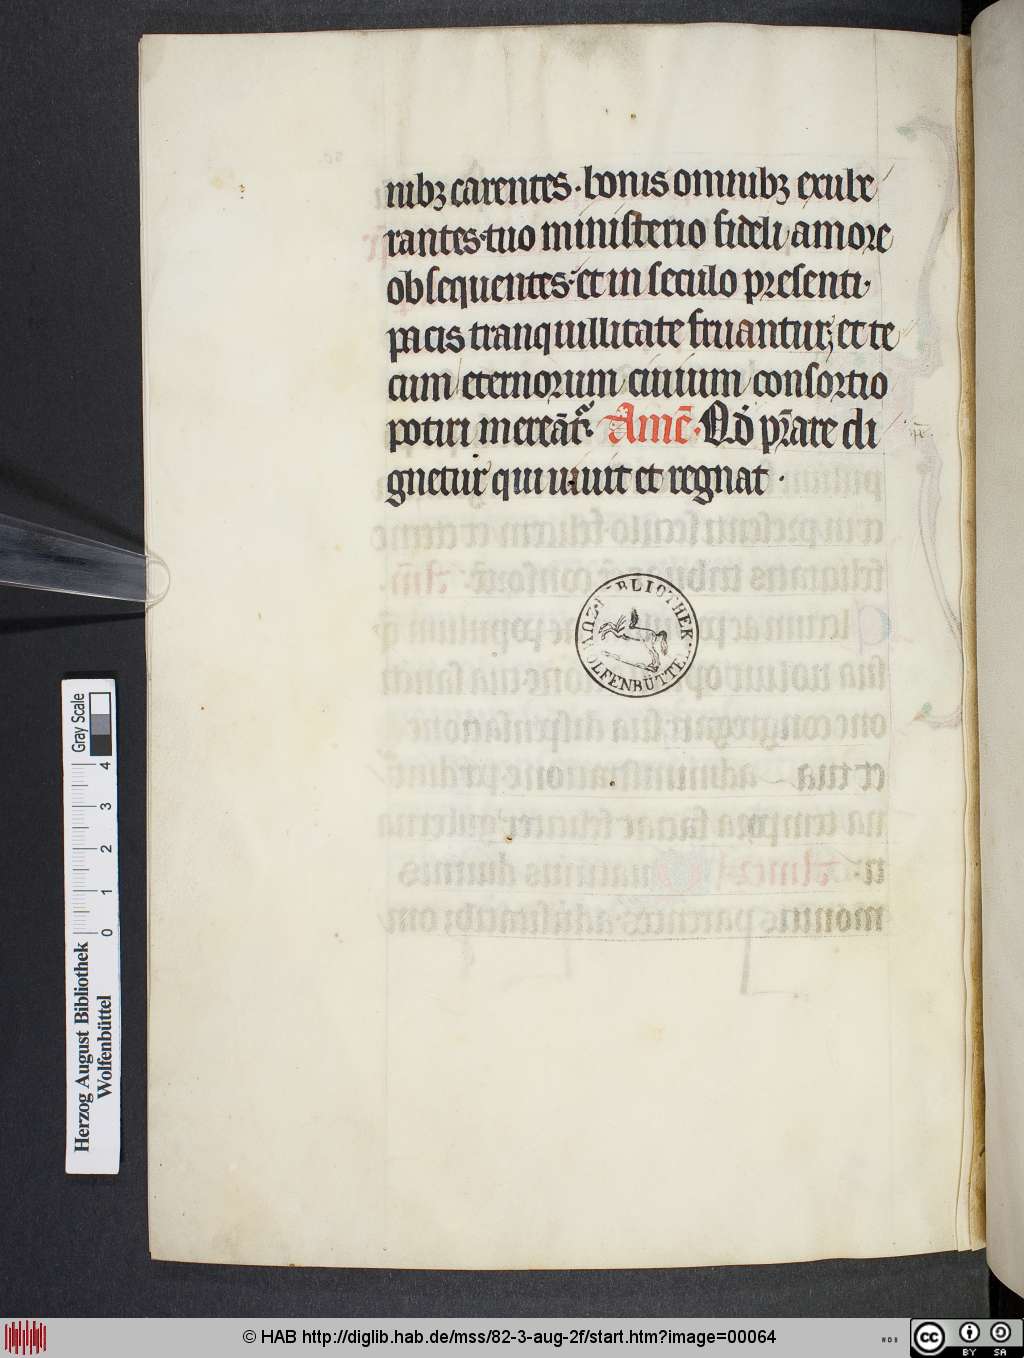 nibꝫ carentes · bonis omnibꝫ exube
rantes · tuo ministerio fideli amore
obsequentes · et in seculo presenti ·
pacis tranquillitate fruantur; et te
cum eternorum ciuium consortio
potiri mereāt᷑. Amē · Qd̕ p̄stare di
gnetur qui uiuit et regnat ·
BIBLIOTHEK
WOLFENBÜTTEL
Gray Scale
4 3 2 1 0
Herzog August Bibliothek
Wolfenbüttel
© HAB http://diglib.hab.de/mss/82-3-aug-2f/start.htm?image=00064
WDB
cc BY SA